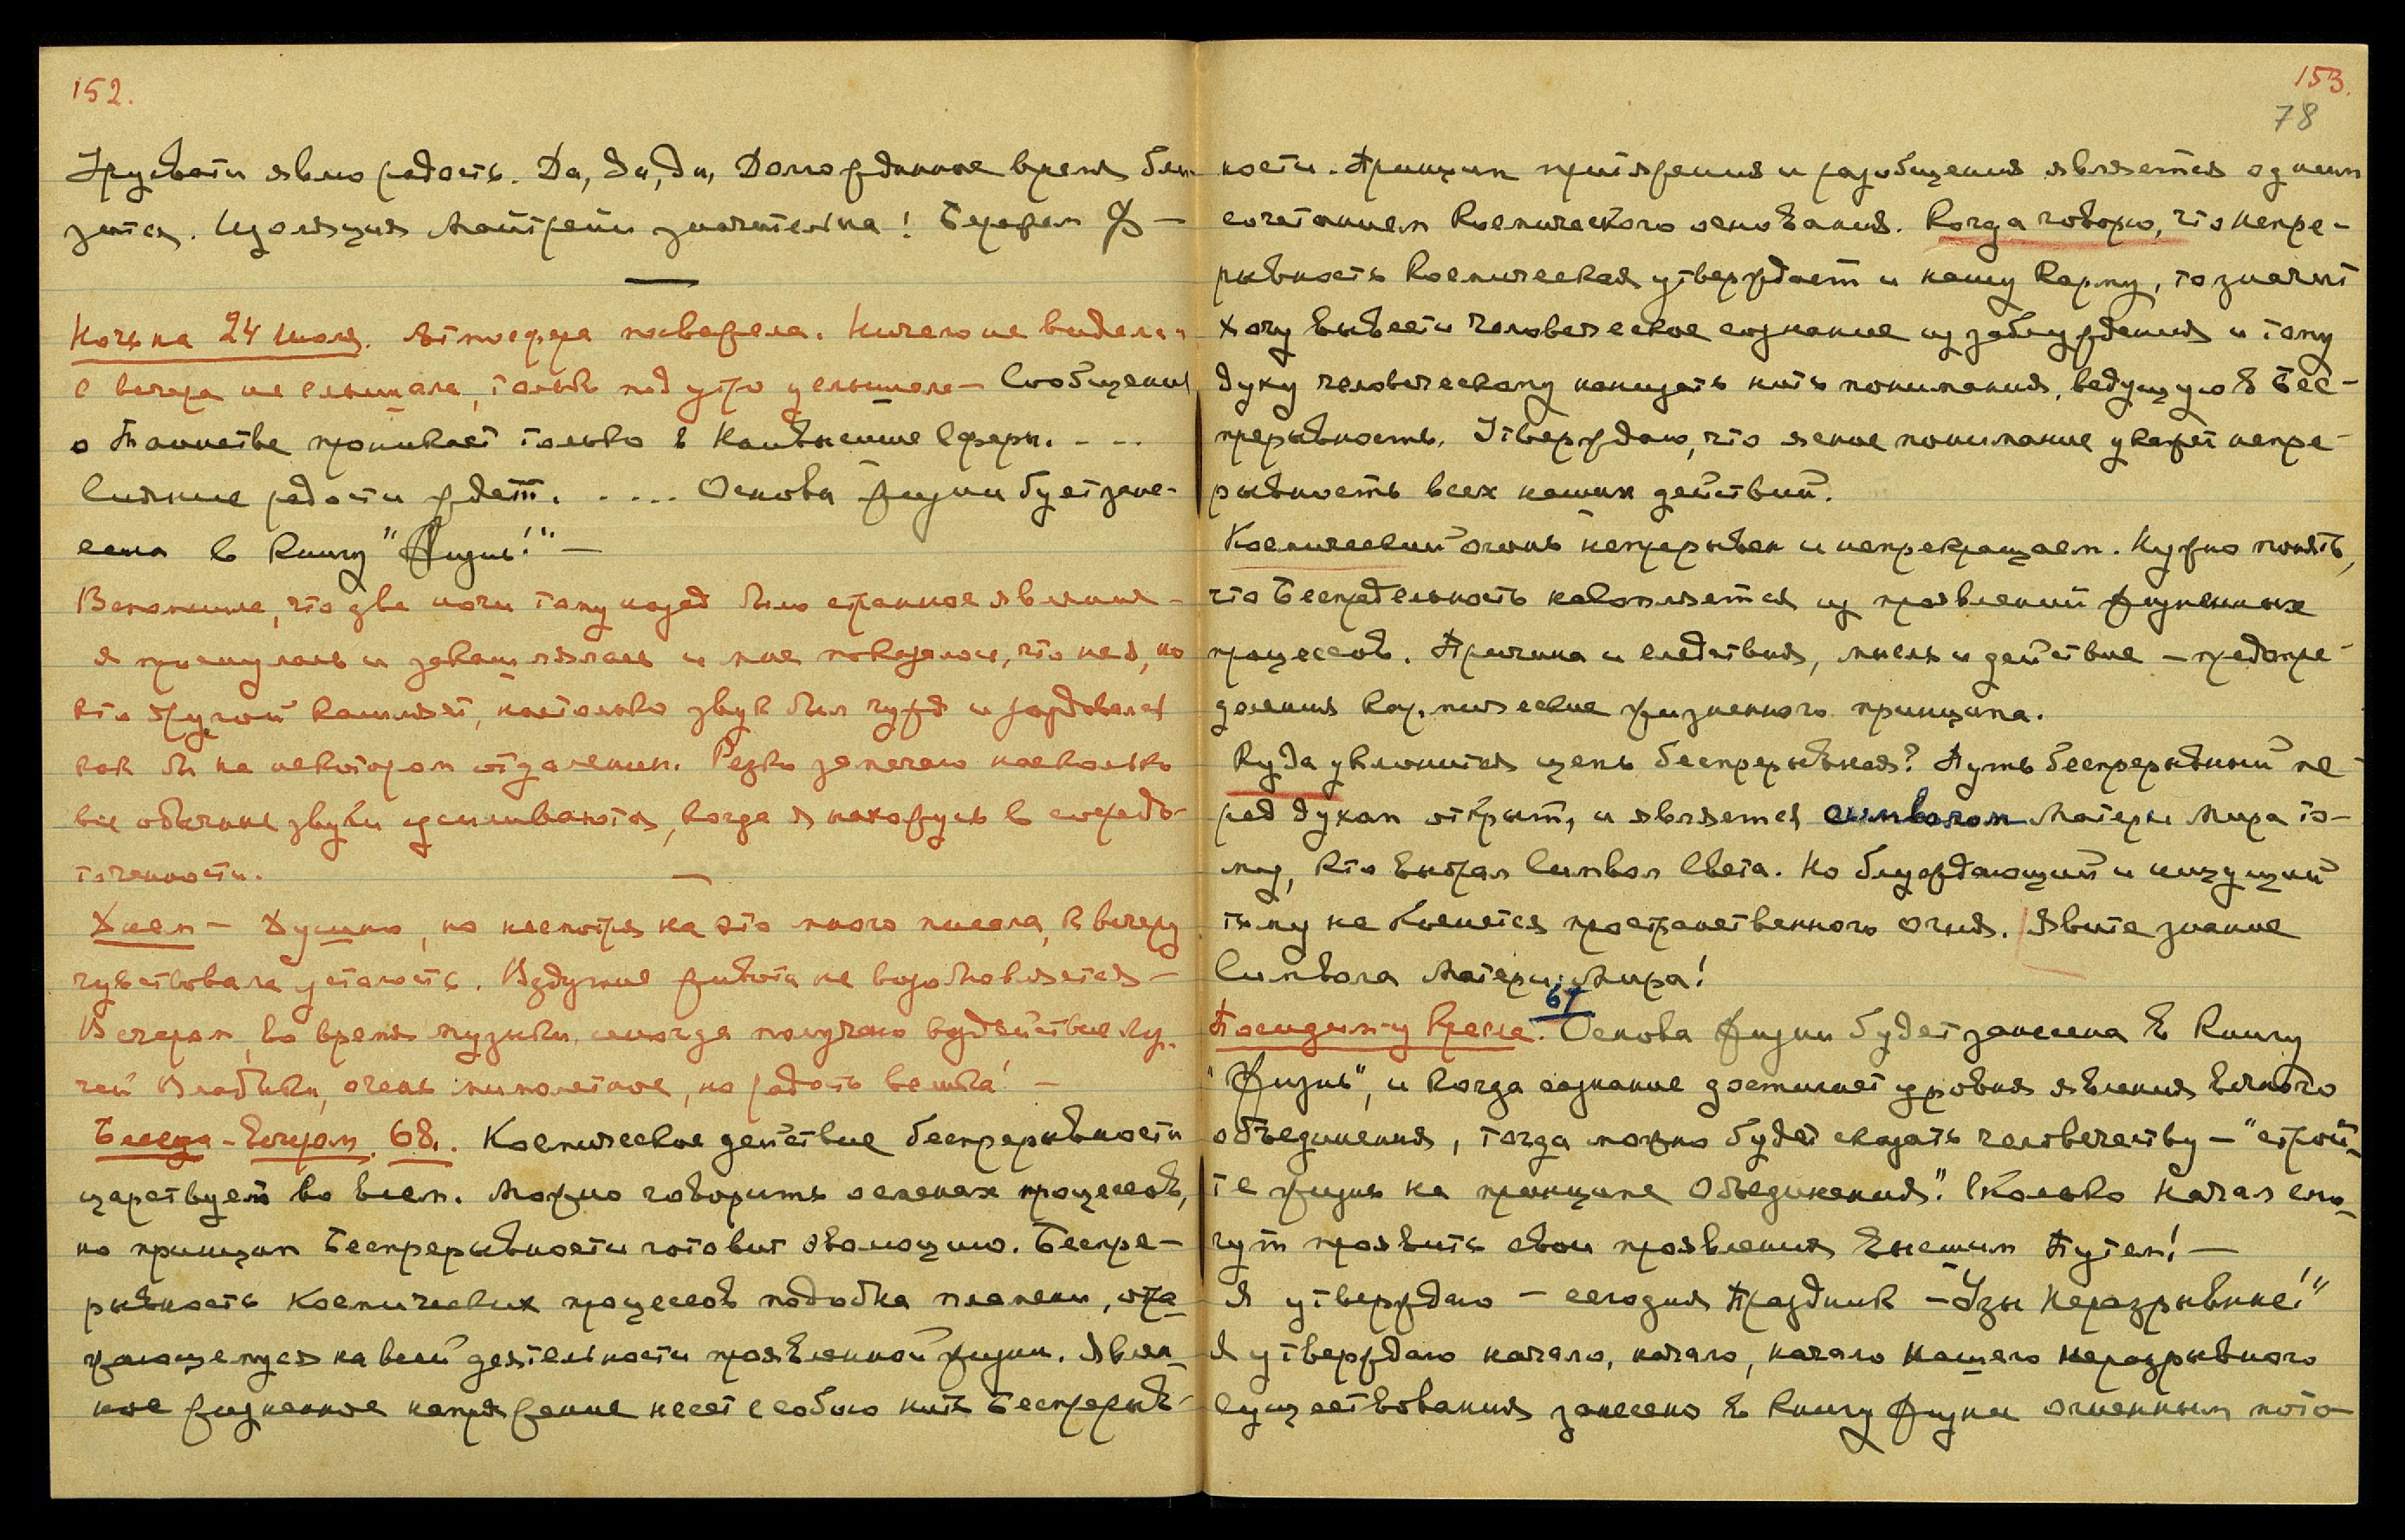 152.
Урусвати явлю радость. Да, да, да, Долгожданное время бли-
зится. Изоляция Матрейи значительна! Бережем
Ночь на 24 июля. Атмосфера посвежела. Ничего не видела и
с вечера не слышала, только под утро услышала — Сообщения
о Таинстве проникает только в Наивысшие Сферы. - - -
Сияние радости ждет. . ... Основа жизни будет зане-
сена в книгу "Жизнь!" —
Вспомнила, что две ночи тому назад было странное явление —
я проснулась и закашлялась и мне показалось, что не я, но
кто другой кашляет, настолько звук был чужд и раздавался
как бы на некотором отдалении. Редко замечаю насколько
все обычные звуки усиливаются, когда я нахожусь в сосредо-
точенности. —
Днем — Душно, но несмотря на это много писала, к вечеру
чувствовала усталость. Вздутие живота не возобновляется —
Вечером, во время музыки, иногда получаю воздействие лу-
чей Владыки, очень мимолетное, но радость велика! —
Беседа - Вечером. 68. Космическое действие беспрерывности
царствует во всем. Можно говорить о сменах процессов,
но принцип Беспрерывности готовит эволюцию. Беспре-
рывность Космических процессов подобна пламени, отра-
жающемуся на всей деятельности проявленной жизни. Явлен-
ное жизненное напряжение несет с собою нить Беспрерыв-
153.
78
ности. Принцип притяжения и разобщения является одним
сочетанием Космического основания. Когда говорю, что непре-
рывность Космическая утверждает и нашу Карму, то значит
хочу вывести человеческое сознание из заблуждения и тому
духу человеческому нанизать нить понимания, ведущую в Бес-
прерывность. Утверждаю, что ясное понимание укажет непре-
рывность всех наших действий.
Космический огонь непрерывен и непрекращаем. Нужно понять,
что Беспредельность накопляется из проявлений жизненных
процессов. Причина и следствия, мысль и действие — предопре-
деления кармические жизненного принципа.
Куда уклонится цепь беспрерывная? Путь беспрерывный пе-
ред духом открыт, и является символом Матери Мира то-
му, кто выбрал Символ Света. Но блуждающий и ищущий
тьму не коснется пространственного огня. Явите знание
Символа Матери Мира!
67
Посидим-у Кресла. Основа жизни будет занесена в книгу
"Жизнь", и когда сознание достигнет уровня явления вечного
объединения, тогда можно будет сказать человечеству — "строй-
те жизнь на принципе Объединения". Сколько начал смо-
гут проявить свои проявления Высшим Путем! —
Я утверждаю — сегодня Праздник — "Узы Неразрывные!"
Я утверждаю начало, начало, начало Нашего Неразрывного
Существования занесено в книгу жизни огненным пото-